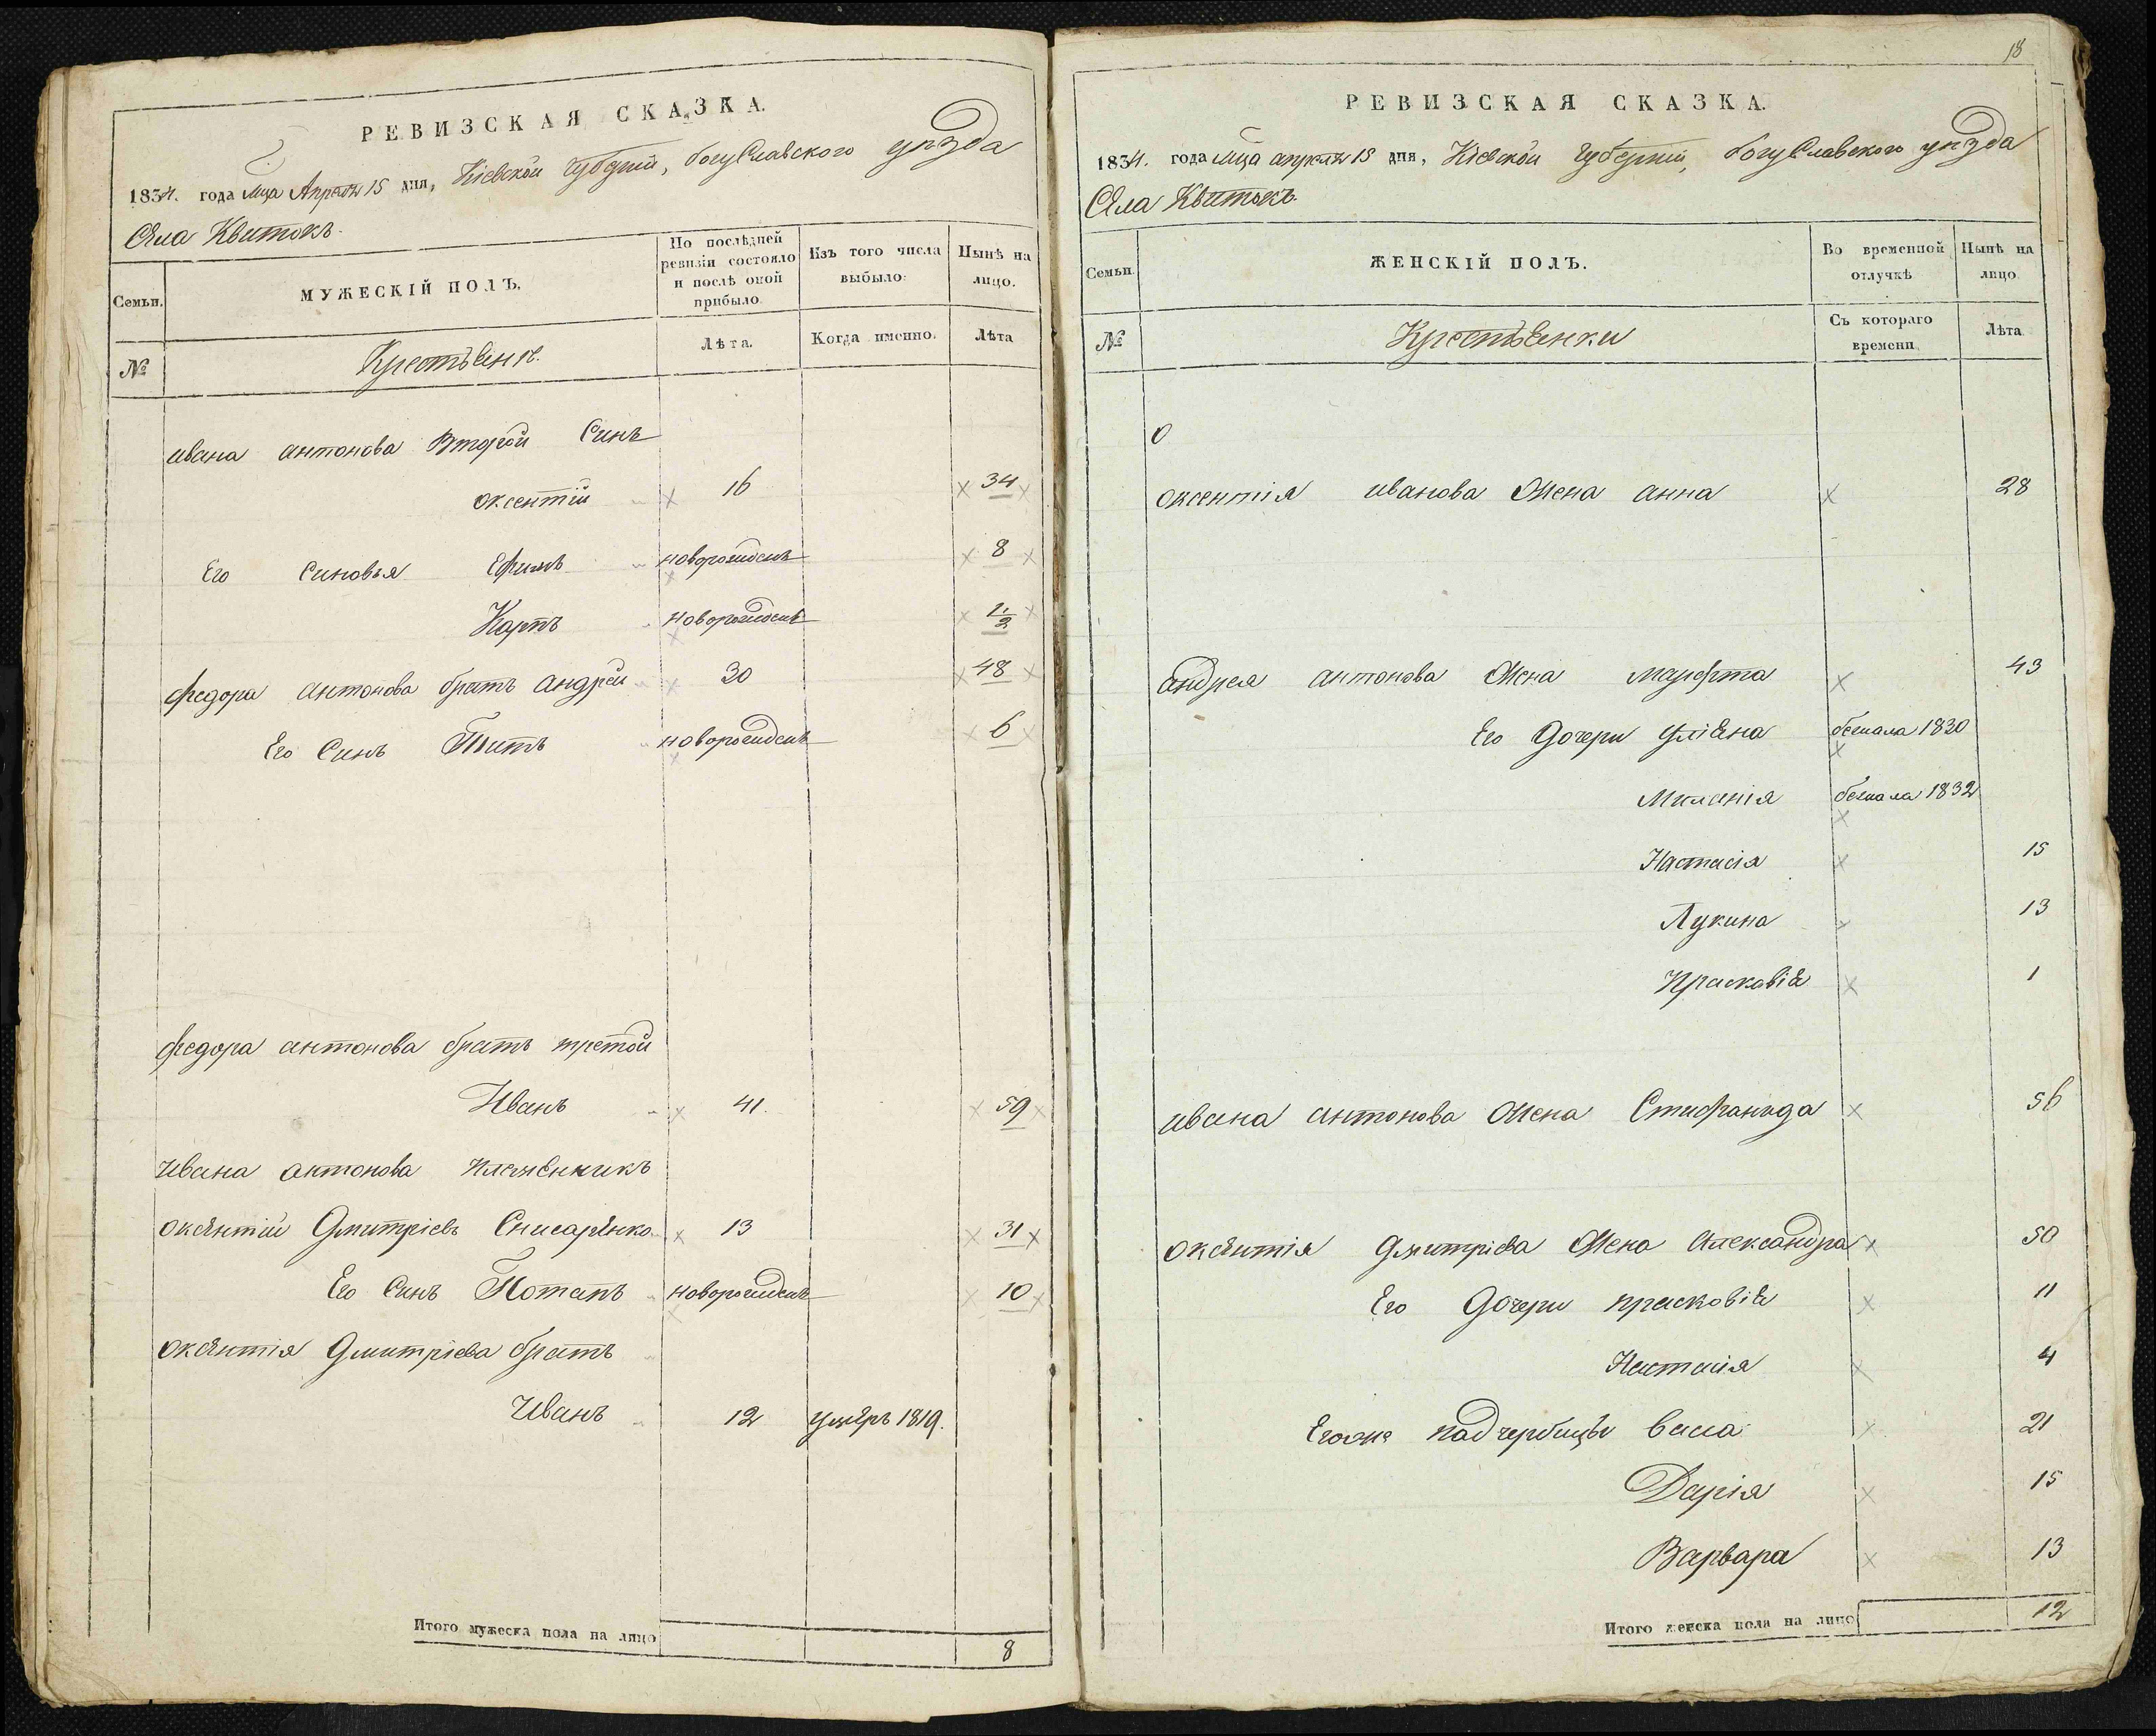 РЕВИЗСКАЯ СКАЗКА.
1834. года мца Апреля 15 дня, Кіевской губерніи, богуславского уезда
села Квитокъ.
Семьи.
МУЖЕСКІЙ ПОЛЪ.
По послѣдней ревизіи состояло и послѣ оной прибыло.
Изъ того числа выбыло:
Нынѣ на лицо.
№
Крестьяне.
Лѣта.
Когда именно.
Лѣта
ивана антонова второй синъ
оксентій 16 34
Его синовья Ефимъ новорожденъ 8
Карпъ новорожденъ 1/2
федора антонова братъ андрей 30 48
Его синъ Титъ новорожденъ 6
федора антонова братъ третой
Иванъ 41. 59
Ивана антонова племенникъ
оксентий Дмитріевъ Снисаренко 13 31
Его синъ Потапъ новорожденъ 10
оксентія Дмитріева братъ
Иванъ 12 умеръ 1819.
Итого мужеска пола на лицо 8
18
РЕВИЗСКАЯ СКАЗКА.
1834. года мца апреля 15 дня, Кіевской губерніи, богуславского уезда
села Квитокъ.
Семьи.
ЖЕНСКІЙ ПОЛЪ.
Во временной отлучкѣ
Нынѣ на лицо
№
Крестьянки
Съ котораго времени
Лѣта
0
оксентія иванова жена анна 28
андрея антонова жена марфта 43
Его дочери уліяна бежала 1830
Миланія бежала 1832
Настасія 15
Лукина 13
Прасковія 1
ивана антонова жена Стифанида 56
оксентія дмитріева жена Александра 50
Его дочери прасковія 11
Настасія 4
Егоже падчерицы васа 21
Дарія 15
Варвара 13
Итого женска пола на лицо 12